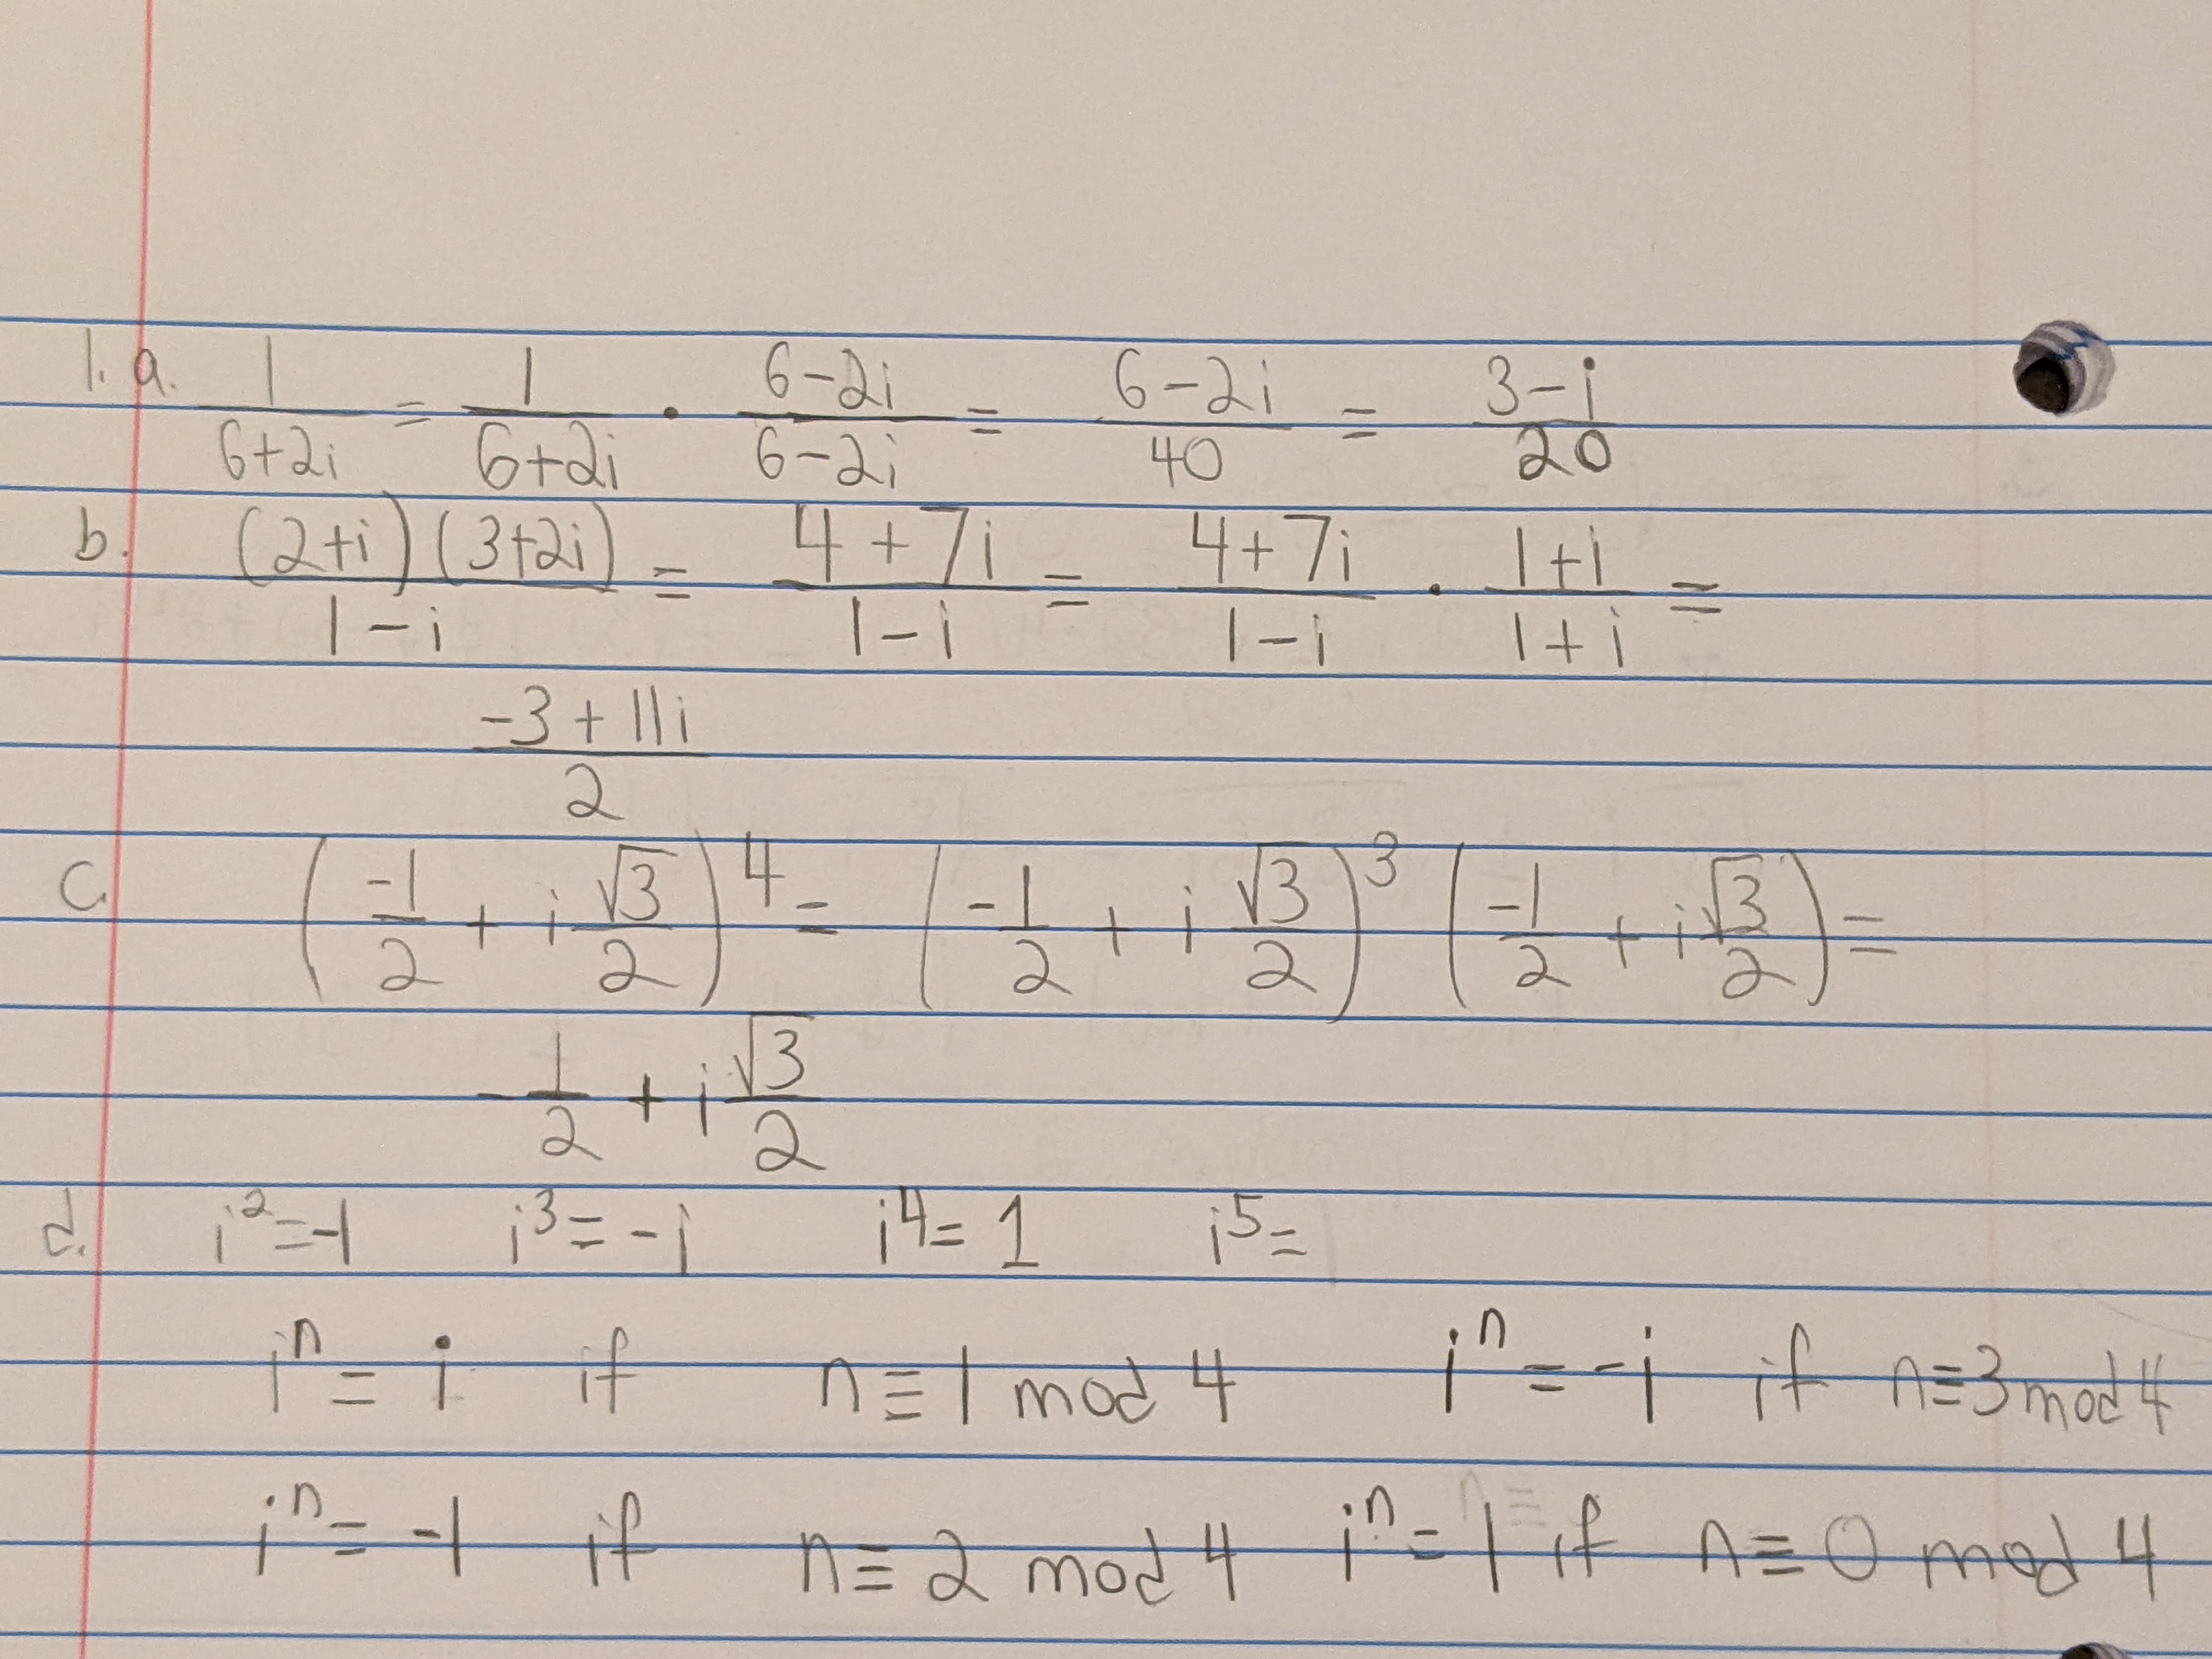 1. a. 1/(6+2i) = 1/(6+2i) · (6-2i)/(6-2i) = (6-2i)/40 = (3-i)/20
b. (2+i)(3+2i)/(1-i) = (4+7i)/(1-i) = (4+7i)/(1-i) · (1+i)/(1+i) =
(-3+11i)/2
c. (-1/2 + i √3/2)^4 = (-1/2 + i √3/2)^3 (-1/2 + i √3/2) =
-1/2 + i √3/2
d. i^2 = -1 i^3 = -i i^4 = 1 i^5 =
i^n = i if n ≡ 1 mod 4 i^n = -i if n ≡ 3 mod 4
i^n = -1 if n ≡ 2 mod 4 i^n = 1 if n ≡ 0 mod 4